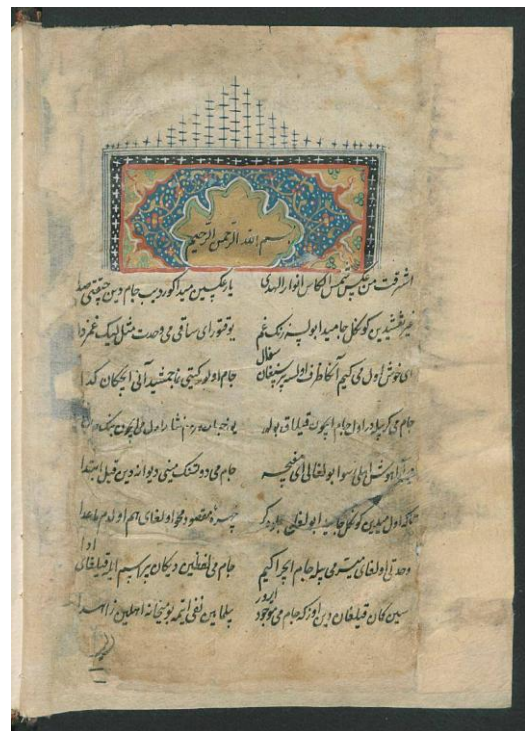 بسم الله الرحمن الرحیم
اشرقت من عکس شمس الکاس انوار الهدی یار عکسین میدا کوردیب جام دین چیقتی صدا
غیر نقشیدین کونکل جامیدا بولسه زنک غم یوقتور ای ساقی می وحدت مثل لیک غمزدا
ای خوش اول می کیم آنکا ظرف اولسه بیر سینغان سفال جام اولور کیتی نما جمشید آنی ایچکان کدا
جام می کر بیله دور اول جام ایچون قیلماق بولور یوز جهان هر دم نثار اول می ایچون
هوش اهلی رسوا بولغالی ای مغبچه جام می دوتسنک منی دیوانه دین قیل ابتدا
تاکه اول میدین کونکل جامیدا بولغای جلوه کر چهرهٔ مقصود محو اولغای هم اول دم ماعدا
وحدتی اولغای میسر می بیله جام ایچرا کیم جام می لفظین دیکان بیر اسم ایله قیلغای ادا
سین کمان قیلغان دین اوزکه جام می موجود ایرور بیلماین نفی ایتمه بو میخانه اهلین زاهدا